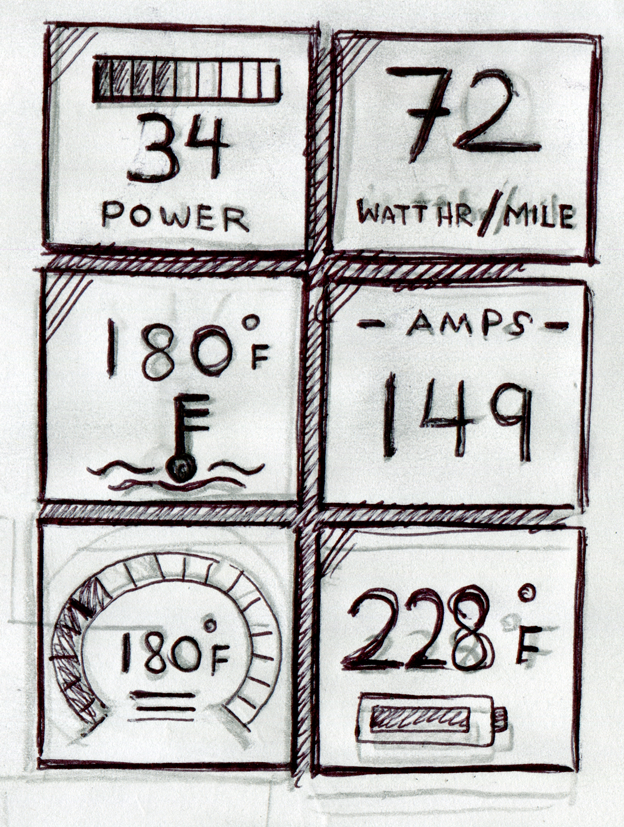 34
POWER
72
WATT HR/MILE
180°F
- AMPS -
149
180°F
228°F